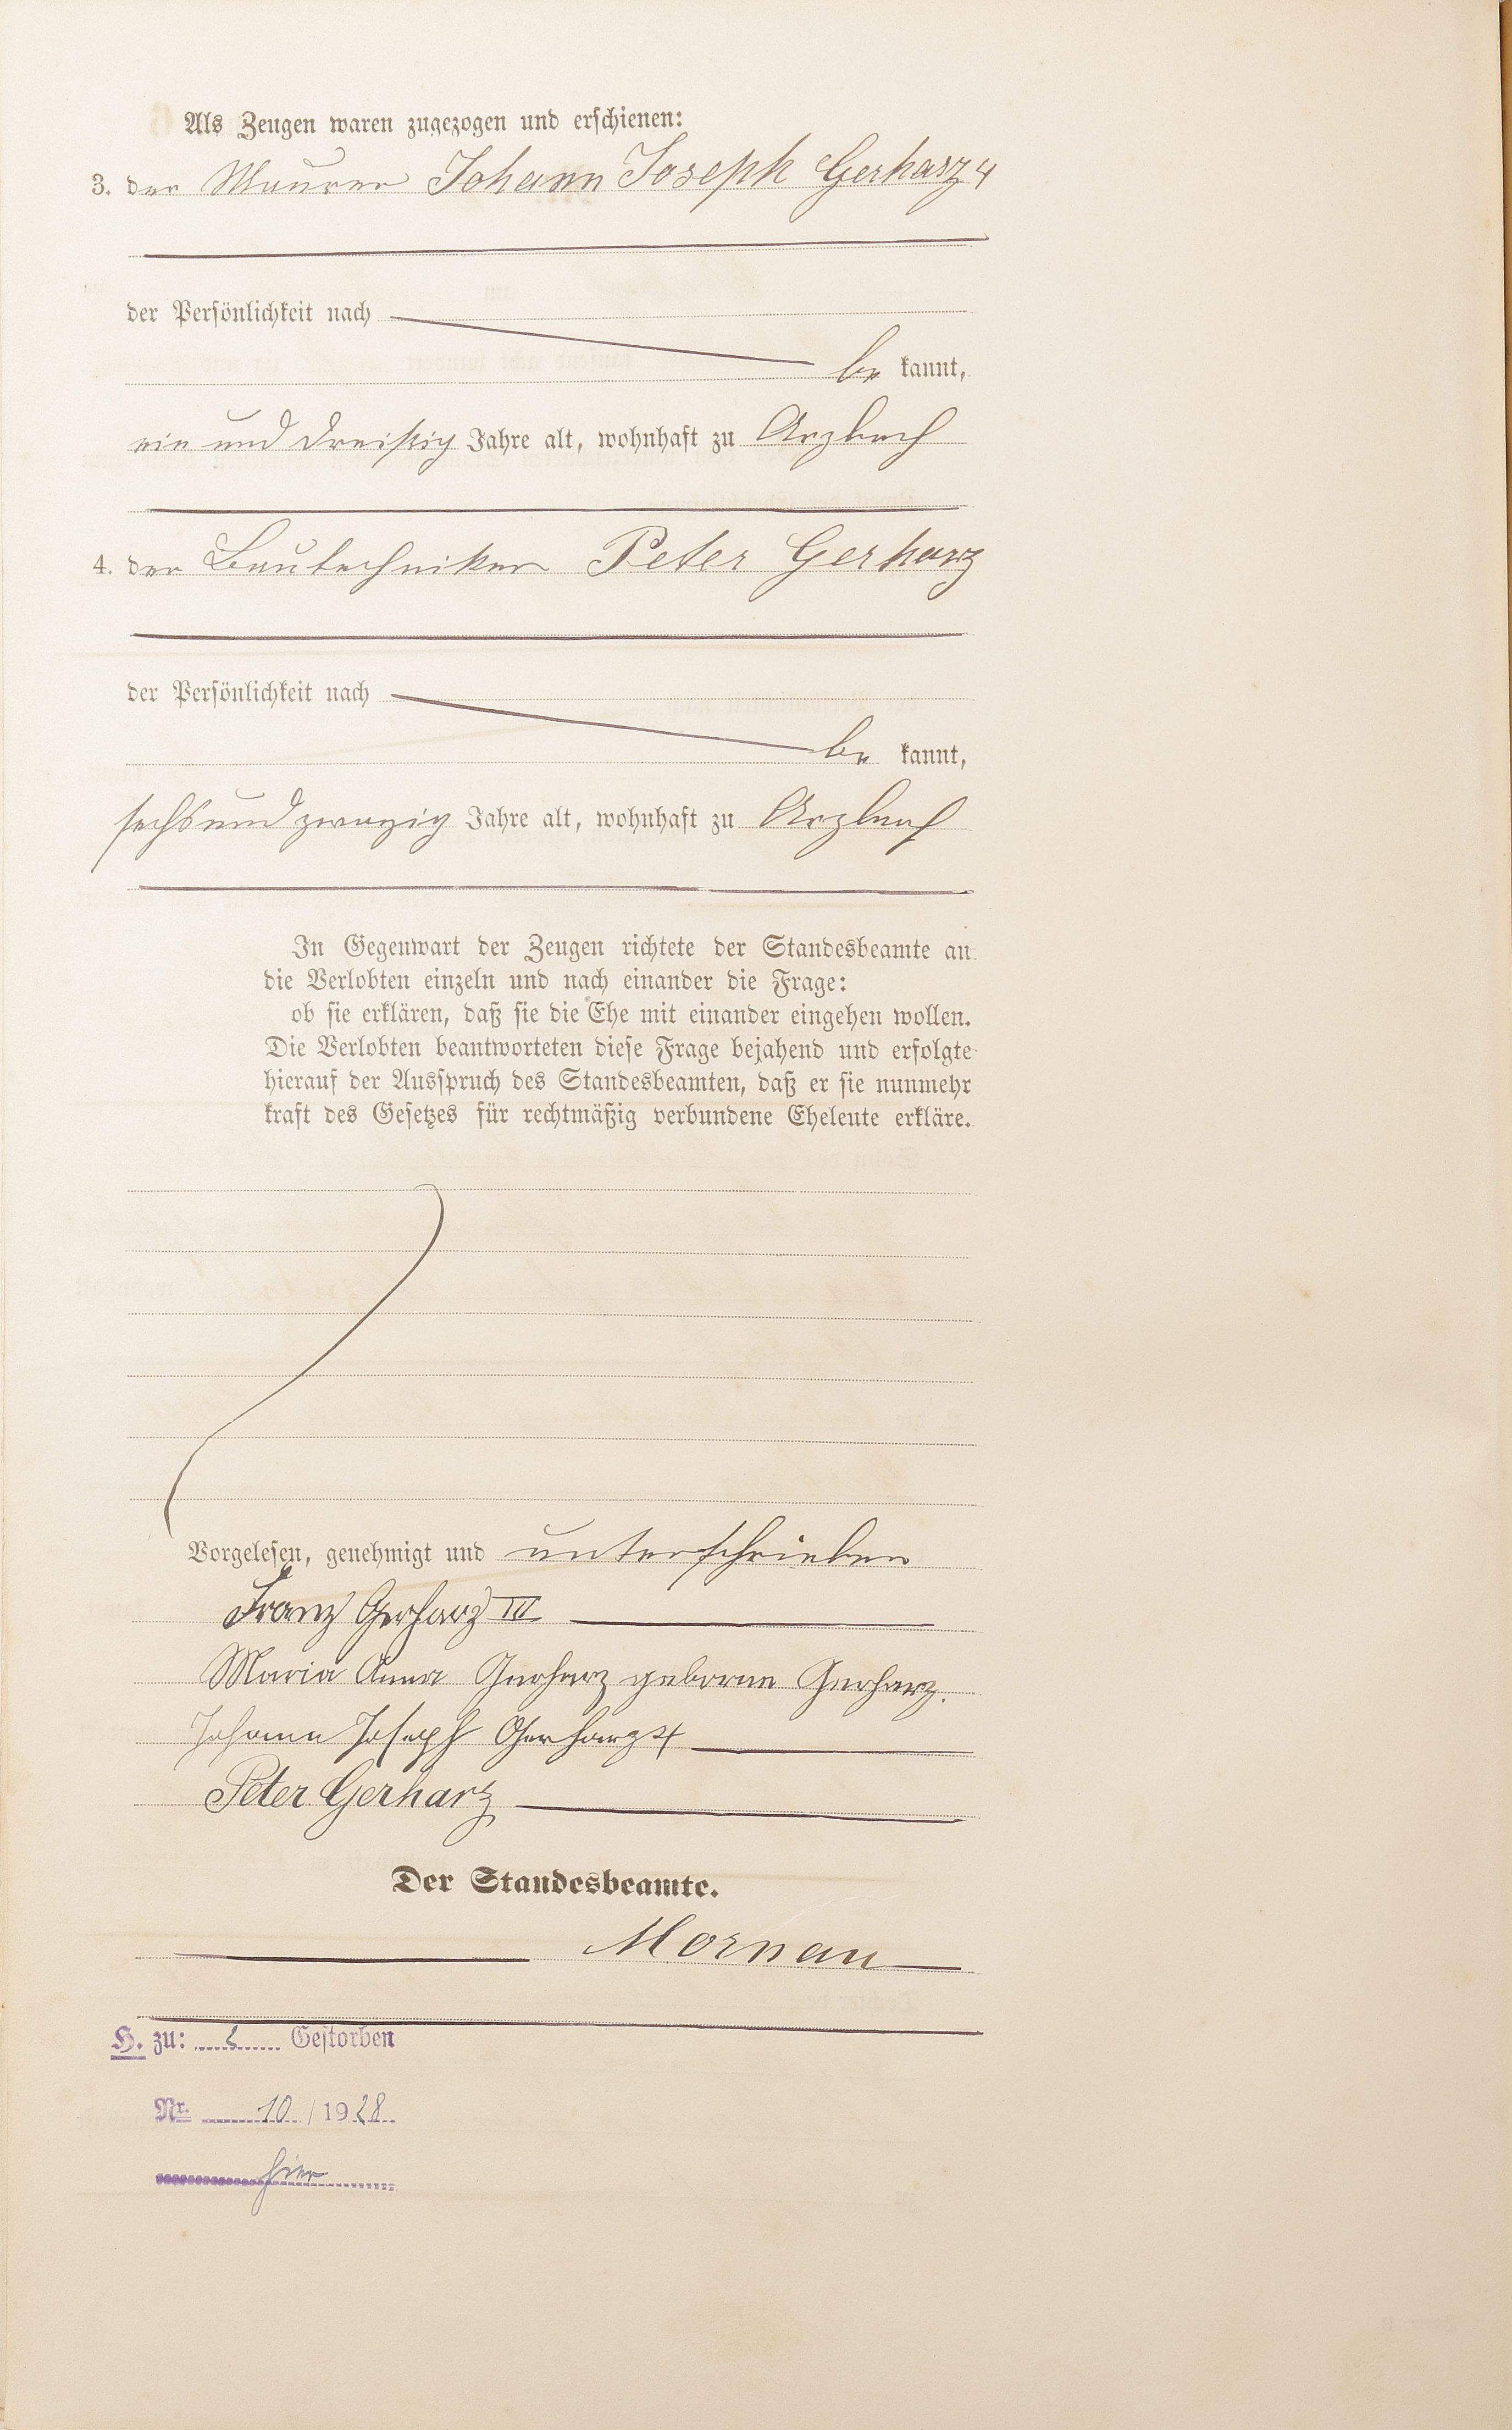 Als Zeugen waren zugezogen und erschienen:
3. der Maurer Johann Joseph Gerharz 4
der Persönlichkeit nach
be kannt,
ein und dreißig Jahre alt, wohnhaft zu Arzbach
4. der Bautechniker Peter Gerharz
der Persönlichkeit nach
be kannt,
sechsundzwanzig Jahre alt, wohnhaft zu Arzbach
In Gegenwart der Zeugen richtete der Standesbeamte an
die Verlobten einzeln und nach einander die Frage:
ob sie erklären, daß sie die Ehe mit einander eingehen wollen.
Die Verlobten beantworteten diese Frage bejahend und erfolgte
hierauf der Ausspruch des Standesbeamten, daß er sie nunmehr
kraft des Gesetzes für rechtmäßig verbundene Eheleute erkläre.
Vorgelesen, genehmigt und unterschrieben
Franz Gerharz III
Maria Anna Gerharz geborne Gerharz.
Johann Joseph Gerharz 4
Peter Gerharz
Der Standesbeamte.
Mornau
H. zu: 2 Gestorben
Nr. 10 / 1928
hier